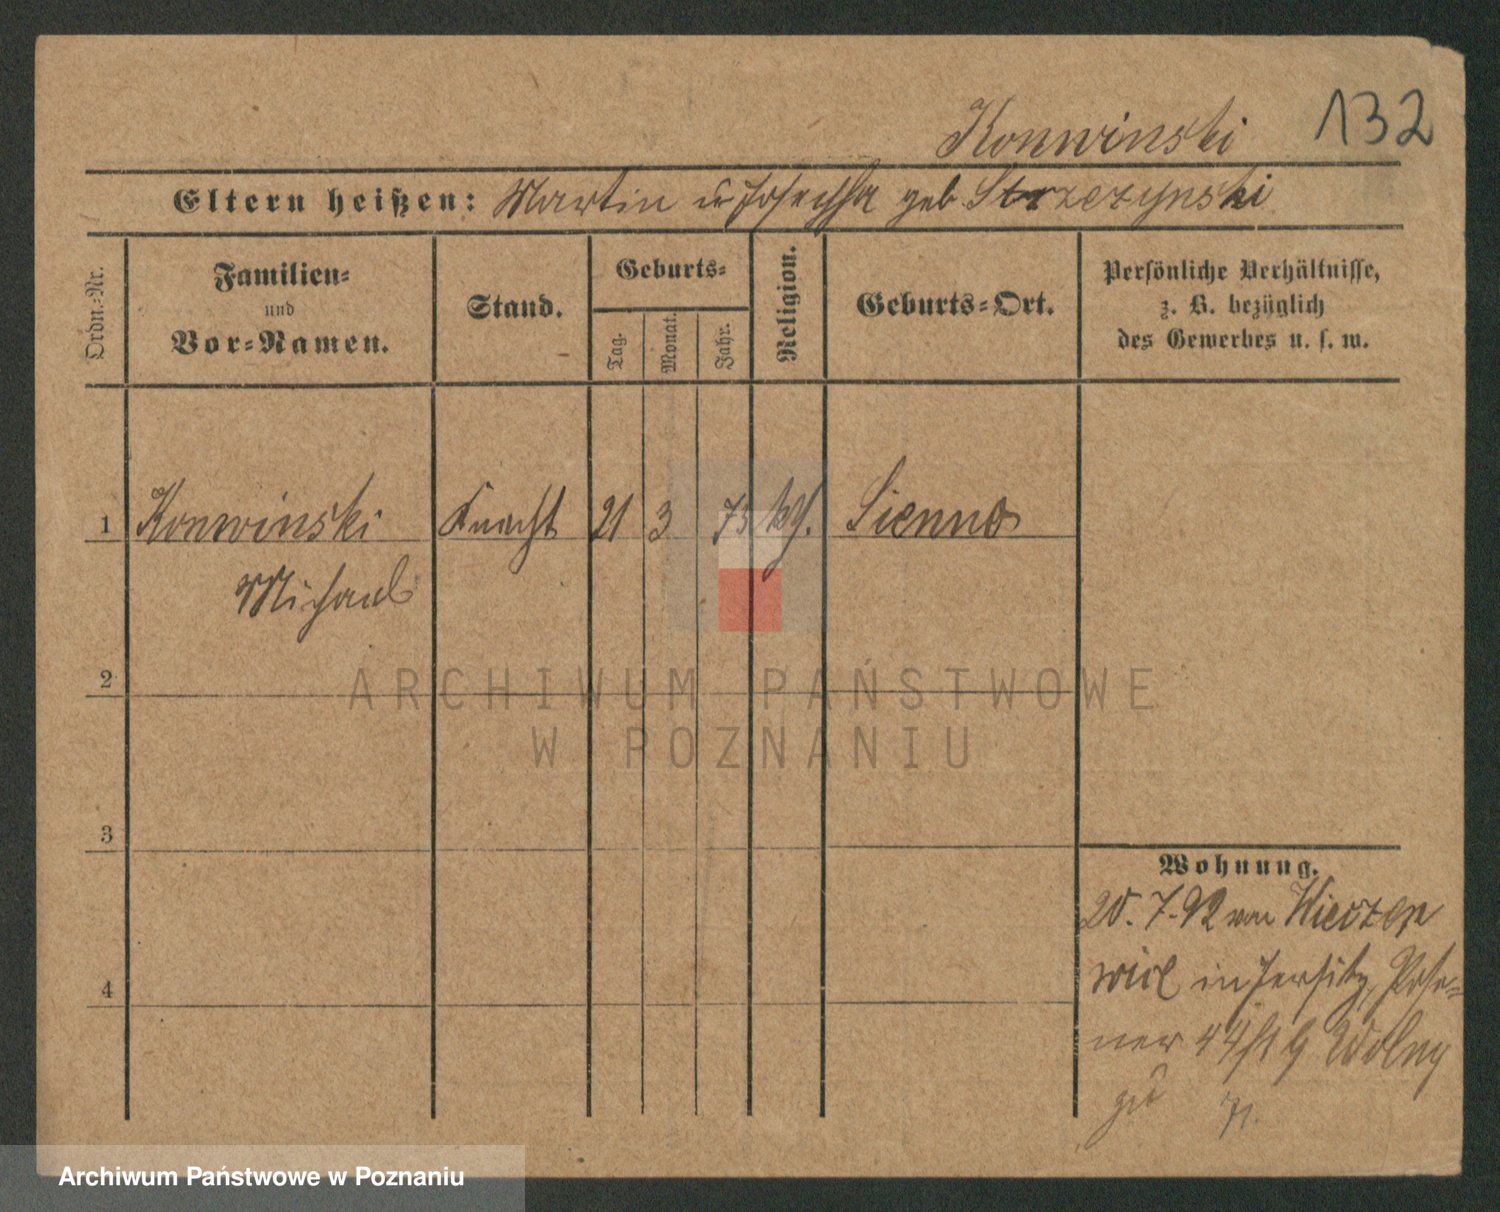 132
Konwinski
Eltern heißen: Martin u Josepha geb Strzezynski
Ordn.-Nr.
Familien-
und
Vor-Namen.
Stand.
Geburts-
Tag.
Monat.
Jahr.
Religion.
Geburts-Ort.
Persönliche Verhältnisse,
z. B. bezüglich
des Gewerbes u. s. w.
1 Konwinski Knecht 21 3 73 kth. Sienno
Michael
2
ARCHIWUM PAŃSTWOWE
W POZNANIU
3
Wohnung.
20. 7. 92 von
in Jersitz, Pose-
4
ner 44/1 b Wolny
Archiwum Państwowe w Poznaniu